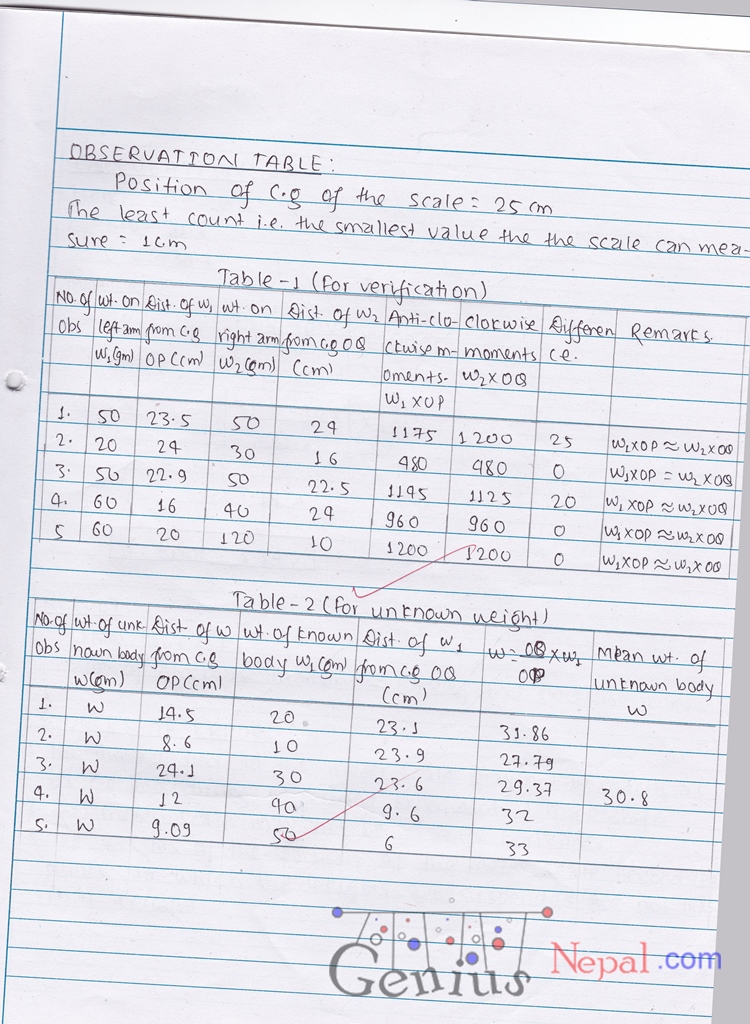 OBSERVATION TABLE:
Position of C.g of the scale = 25 cm
The least count i.e. the smallest value the the scale can mea-
sure = 1cm
Table-1 (For verification)
No. of obs | wt. on left arm W1(gm) | Dist. of W1 from C.g OP (cm) | wt. on right arm W2(gm) | Dist. of W2 from C.g OQ (cm) | Anti-clo-ckwise m-oments. W1×OP | Clockwise moments W2×OQ | Differen ce. | Remarks.
1. 50 23.5 50 24 1175 1200 25 W1×OP ≈ W2×OQ
2. 20 24 30 16 480 480 0 W1×OP = W2×OQ
3. 50 22.9 50 22.5 1145 1125 20 W1×OP ≈ W2×OQ
4. 60 16 40 24 960 960 0 W1×OP ≈ W2×OQ
5 60 20 120 10 1200 1200 0 W1×OP ≈ W2×OQ
Table-2 (For unknown weight)
No. of obs | wt. of unk-nown body W(gm) | Dist. of W from C.g OP (cm) | wt. of known body W1(gm) | Dist. of W1 from C.g OQ (cm) | W = OQ/OP × W1 | Mean wt. of unknown body W
1. W 14.5 20 23.1 31.86
2. W 8.6 10 23.9 27.79
3. W 24.1 30 23.6 29.37 30.8
4. W 12 40 9.6 32
5. W 9.09 50 6 33
Genius Nepal.com